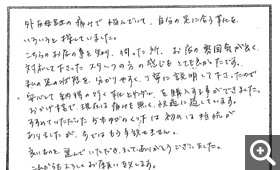 外反母趾の痛みで悩んでいて、自分の足に合う靴を
いろいろと探していました。
こちらのお店の事を知り、伺った所、お店の雰囲気が良く
対応して下さったスタッフの方の感じもとても良かったです。
私の足の状態を、分かりやすく、丁寧に説明して下さったので
安心して納得のいく靴とを購入する事ができました。
おかげ様で、現在は痛みも無く、快適に過しています。
すすめていただいた 靴は初めは抵抗が
ありましたが、今ではもう手放せません。
良いものを選んでいただき、ありがとうございました。
これからもよろしくお願い致します。